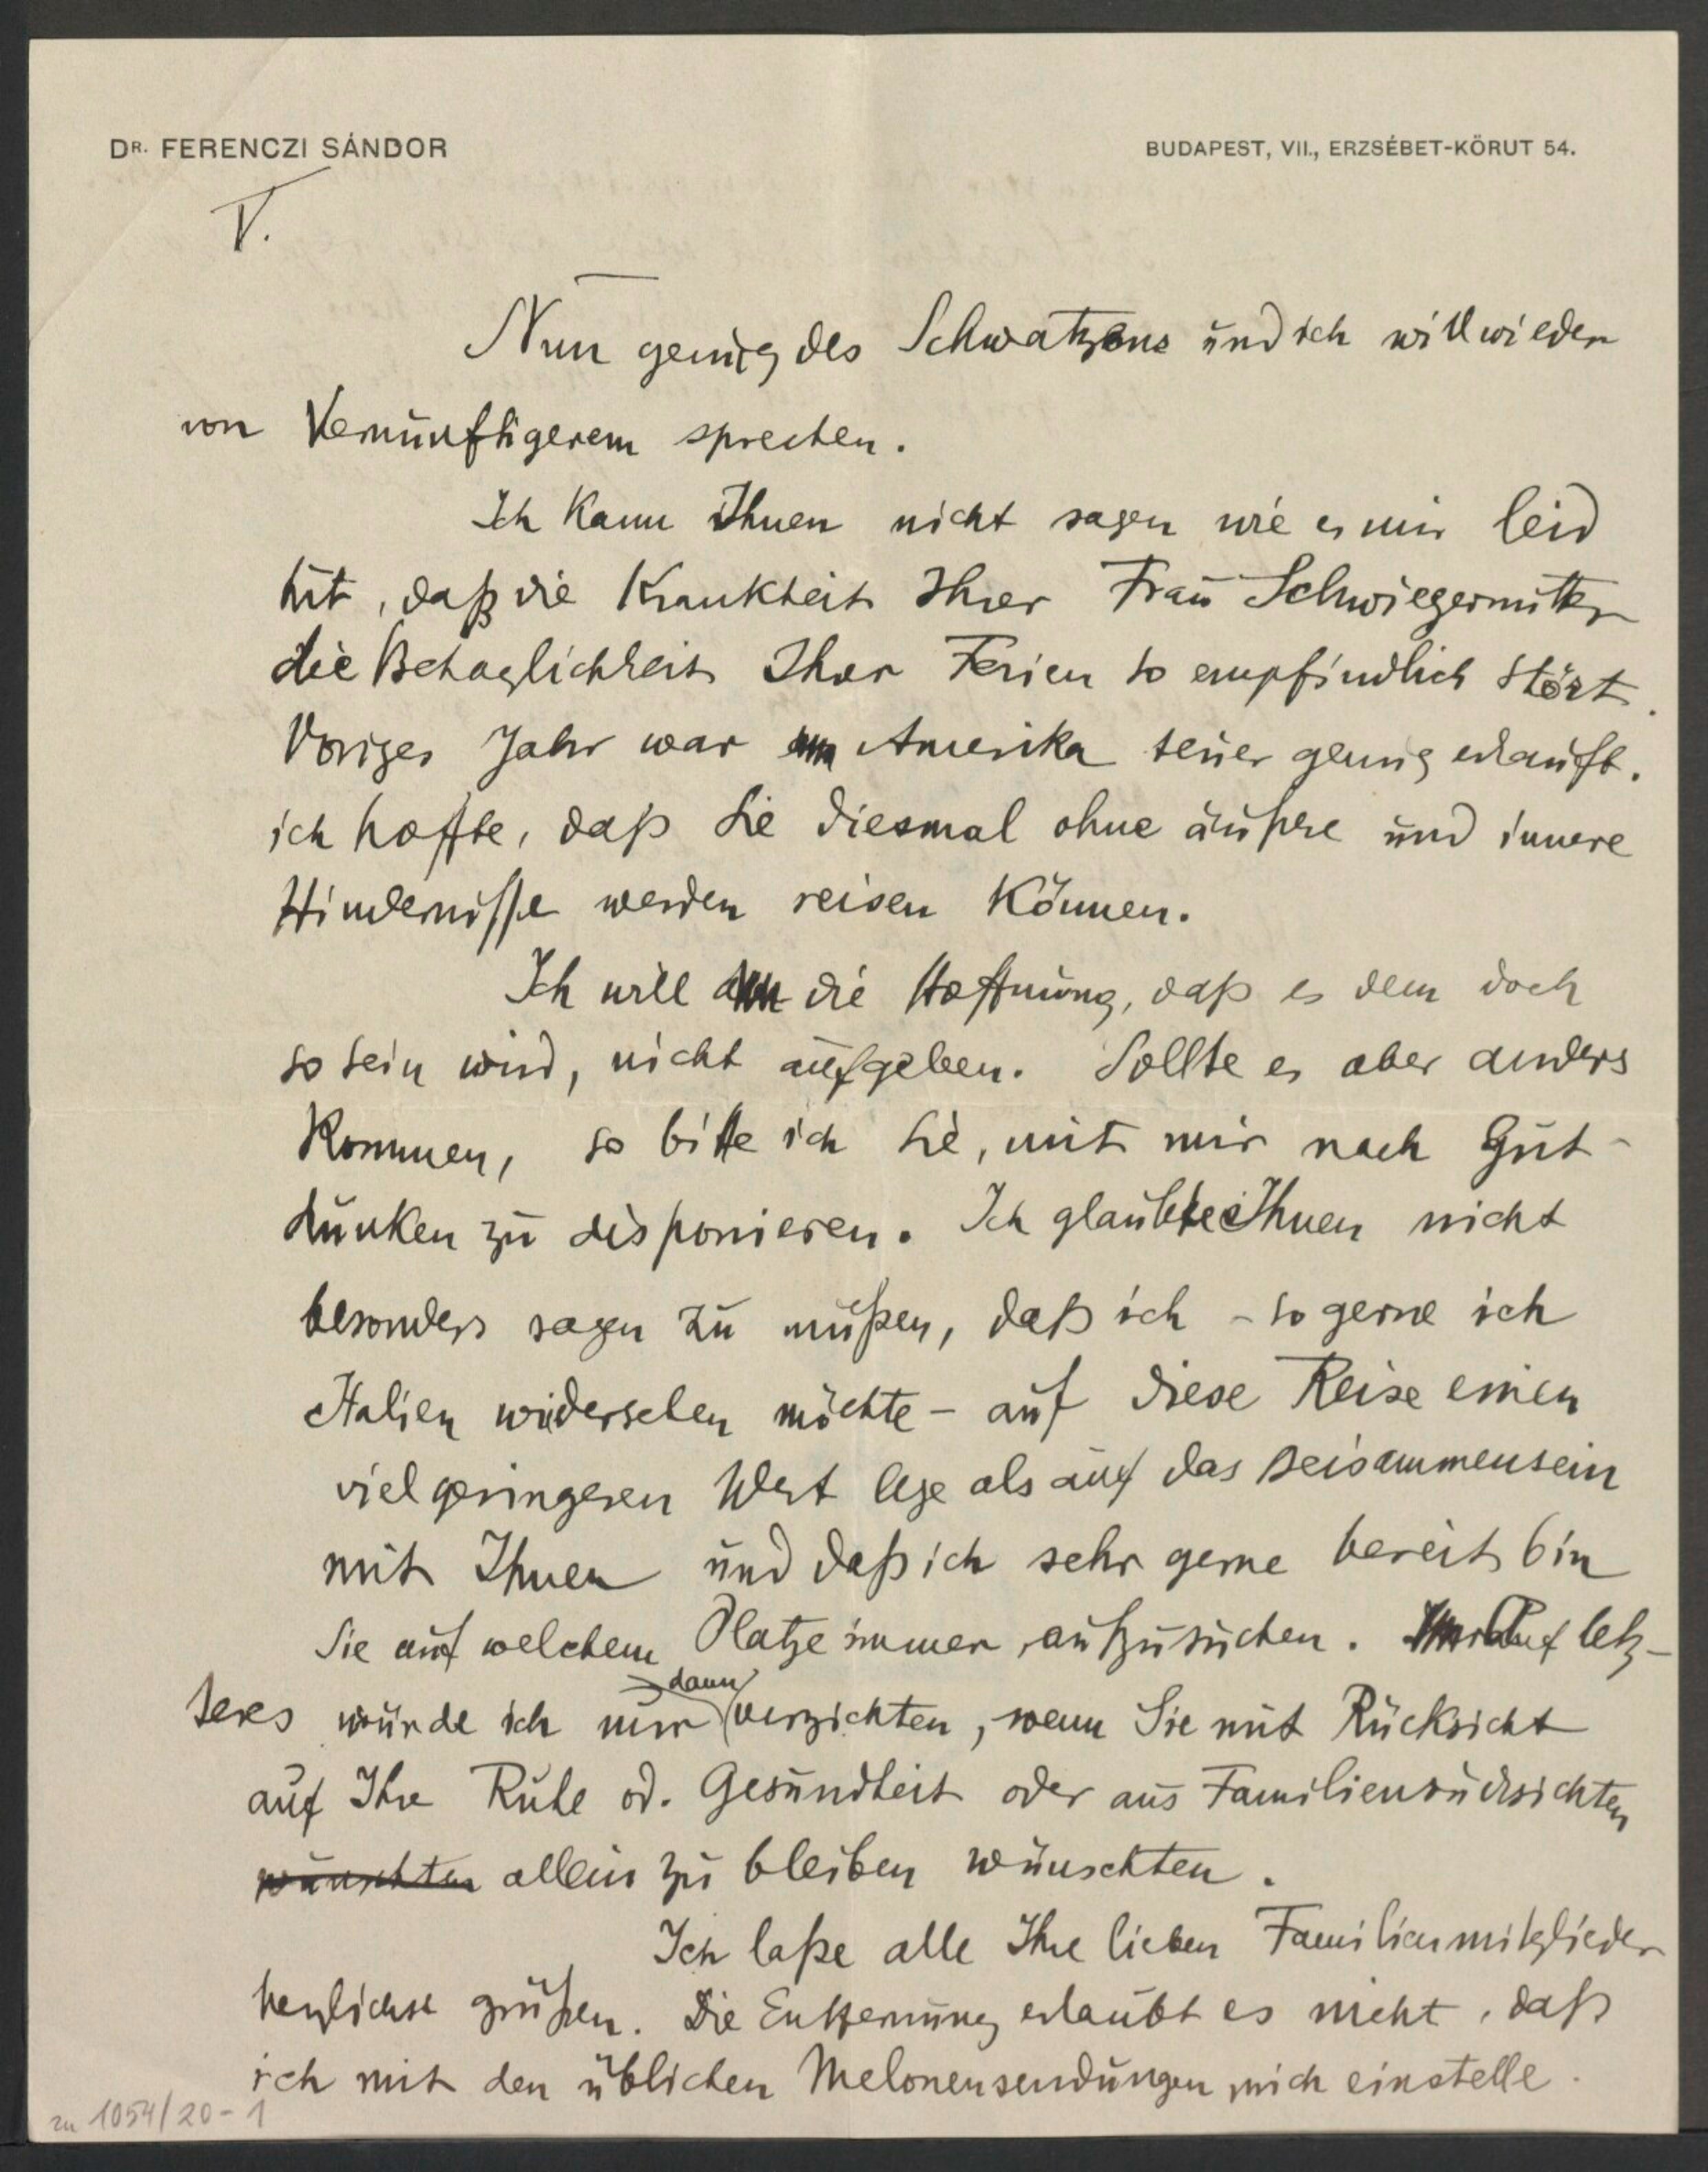 DR. FERENCZI SÁNDOR
BUDAPEST, VII., ERZSÉBET-KÖRUT 54.
V.
Nun genug des Schwatzens und ich will wieder
von Vernünftigerem sprechen.
Ich kann Ihnen nicht sagen wie es mir leid
tut, daß die Krankheit Ihrer Frau Schwiegermutter
die Behaglichkeit Ihrer Ferien so empfindlich stört.
Voriges Jahr war Amerika teuer genug erkauft.
ich hoffte, daß Sie diesmal ohne äußere und innere
Hindernisse werden reisen können.
Ich will die Hoffnung, daß es dem doch
so sein wird, nicht aufgeben. Sollte es aber anders
kommen, so bitte ich Sie, mit mir nach Gut-
dünken zu disponieren. Ich glaubte Ihnen nicht
besonders sagen zu müßen, daß ich - so gerne ich
Italien widersehen möchte - auf diese Reise einen
viel geringeren Wert lege als auf das Beisammensein
mit Ihnen und daß ich sehr gerne bereit bin
Sie auf welchem Platze immer aufzusuchen. Auf letz-
teres würde ich nur dann verzichten, wenn Sie mit Rücksicht
auf Ihre Ruhe od. Gesundheit oder aus Familienrücksichten
wünschten allein zu bleiben wünschten.
Ich laße alle Ihre lieben Familienmitglieder
herzlichst grüßen. Die Entfernung erlaubt es nicht, daß
ich mit den üblichen Melonensendungen mich einstelle.
zu 1054/20-1